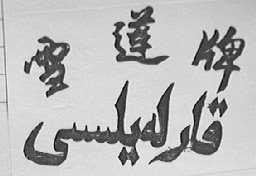 雪莲牌
قارلەيلىسى